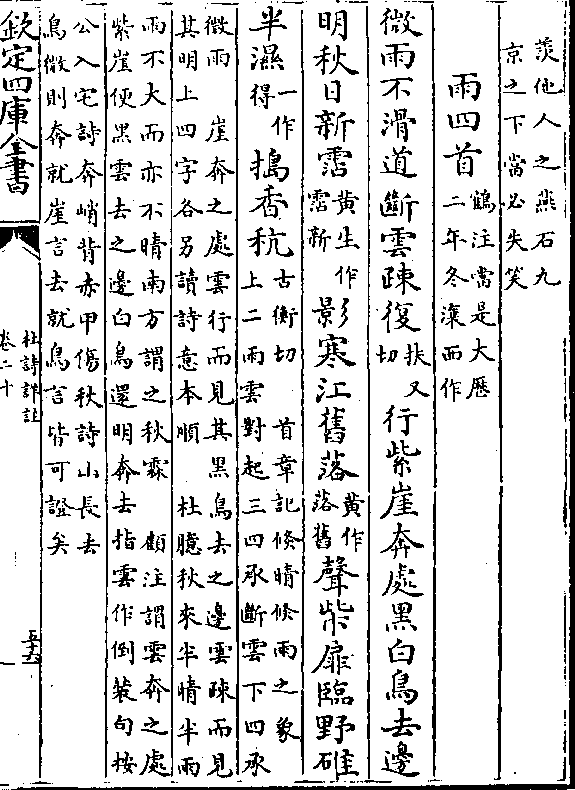 羨他人之燕石九
京之下當必失笑
雨四首 鶴注當是大厯二年冬瀼西作
微雨不滑道斷雲疎復 扶又切 行紫崖奔處黑白鳥去邊
明秋日新霑 黃生作霑新 影寒江舊落 黃作落舊 聲柴扉臨野碓
半濕 一作得 搗香秔 古衡切 首章記倐晴倐雨之象
上二雨雲對起三四承斷雲下四承
微雨 崖奔之處雲行而見其黑鳥去之邊雲疎而見
其明上四字各另讀詩意本順 杜臆秋來半晴半雨
雨不大而亦不晴南方謂之秋霖 顧注謂雲奔之處
紫崖便黑雲去之邊白鳥還明奔去指雲作倒裝句按
公入宅詩奔峭背赤甲傷秋詩山長去
鳥微則奔就崖言去就鳥言皆可證矣
欽定四庫全書
杜詩詳註
卷二十